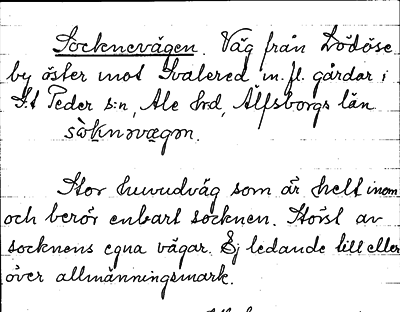 Socknevägen. Väg från Lödöse
by öster mot Svalered m.fl. gårdar i
S:t Peder s:n, Ale hrd, Älfsborgs län
sòknəvægən.
Stor huvudväg som är helt inom
och berör enbart socknen. Störst av
socknens egna vägar. Ej ledande till eller
över allmänningsmark.